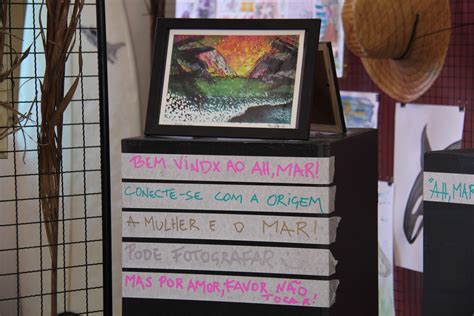 BEM VINDX AO AH, MAR!
CONECTE-SE COM A ORIGEM
A MULHER E O MAR!
PODE FOTOGRAFAR
MAS POR AMOR, FAVOR NÃO
TOCAR!
"AH, MAR